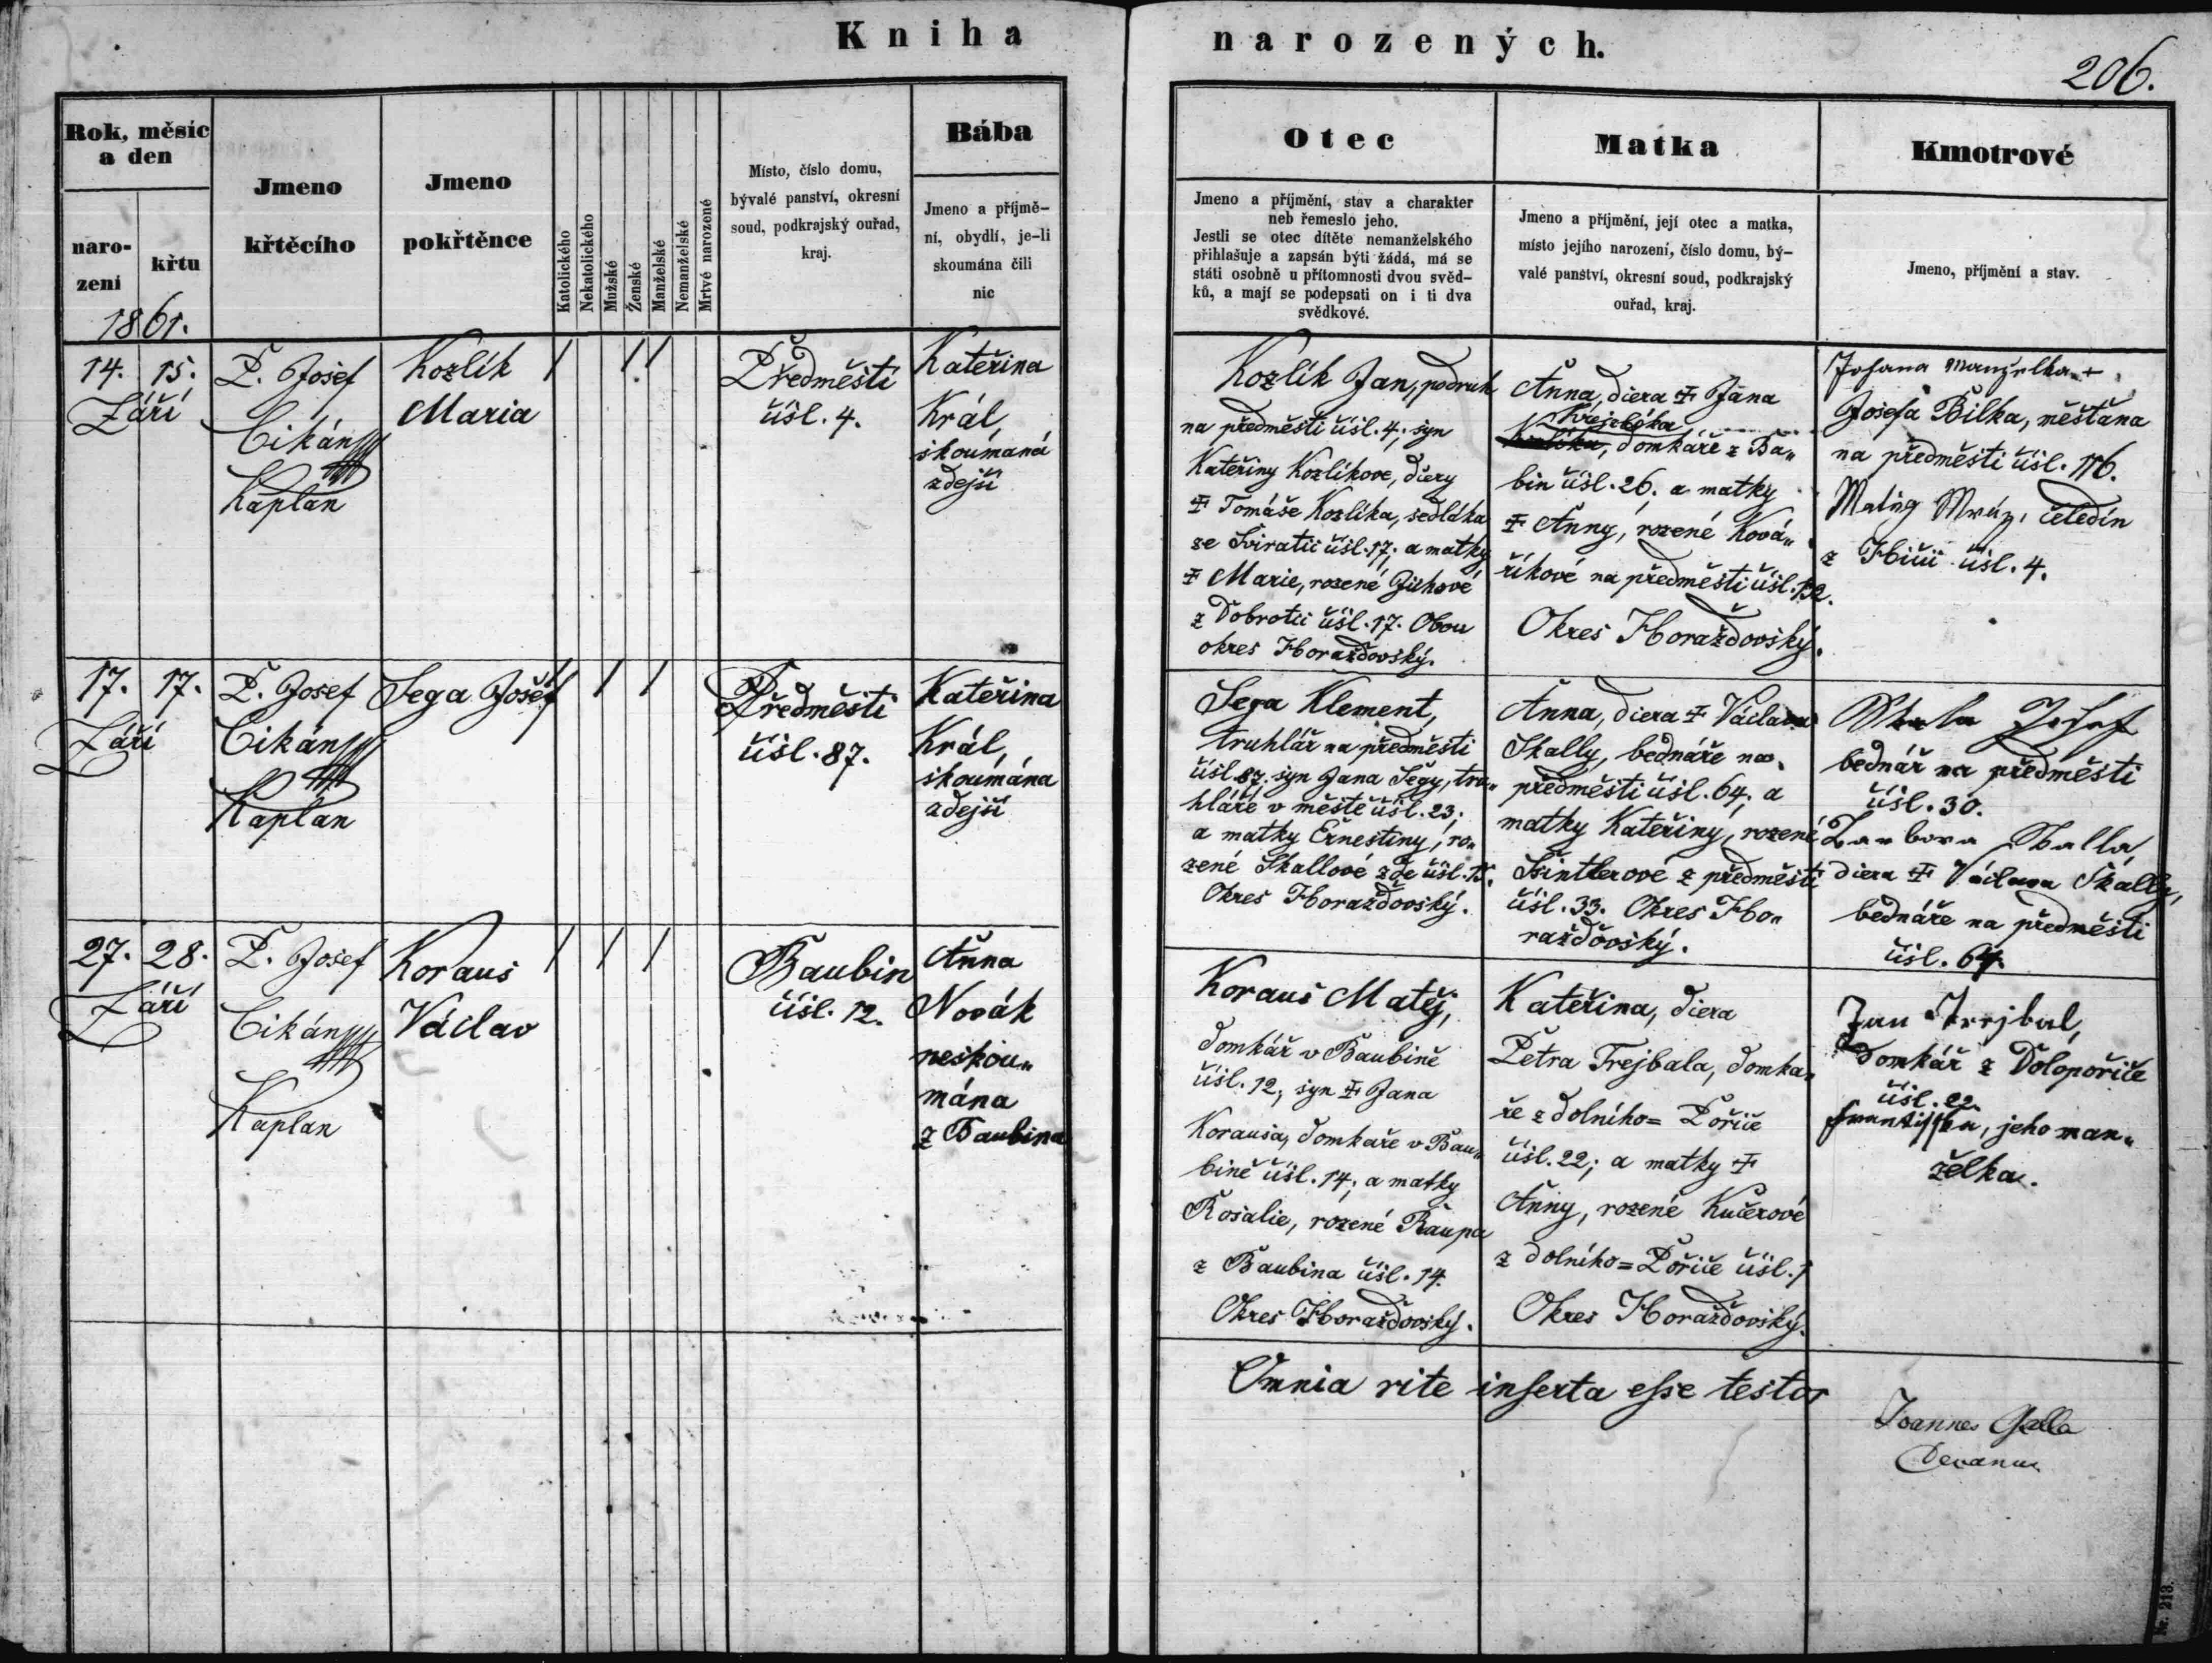 Kniha narozených.
206.
Rok, měsíc
a den
naro-
zení
křtu
1861.
Jmeno
křtěcího
Jmeno
pokřtěnce
Katolického
Nekatolického
Mužské
Ženské
Manželské
Nemanželské
Mrtvé narozené
Místo, číslo domu,
bývalé panství, okresní
soud, podkrajský ouřad,
kraj.
Bába
Jmeno a příjmě-
ní, obydlí, je-li
skoumána čili
nic
Otec
Jmeno a příjmění, stav a charakter
neb řemeslo jeho.
Jestli se otec dítěte nemanželského
přihlašuje a zapsán býti žádá, má se
státi osobně u přítomnosti dvou svěd-
ků, a mají se podepsati on i ti dva
svědkové.
Matka
Jmeno a příjmění, její otec a matka,
místo jejího narození, číslo domu, bý-
valé panství, okresní soud, podkrajský
ouřad, kraj.
Kmotrové
Jmeno, příjmění a stav.
14. 15.
Září
P. Josef
Cikán
Kaplan
Kozlík
Maria
Předměstí
čísl. 4.
Kateřina
Král,
skoumaná
zdejší
Kozlík Jan, podruh
na předměstí čísl. 4; syn
Kateřiny Kozlíkove, dcery
‡ Tomáše Kozlíka, sedláka
ze Sviratic čísl. 17; a matky
‡ Marie, rozené Jichové
z Dobrotic čísl. 17. Obou
okres Horažďovský.
Anna, dcera ‡ Jana
Krejcbíka
domkáře z Ba„
bin čísl. 26. a matky
‡ Anny, rozené Ková„
říkové na předměstí čísl. 132.
Okres Horažďovský.
Johana manželka +
Josefa Bílka, měšťana
na předměstí čísl. 176.
Matěg Mráz, čeledín
z Hičic čísl. 4.
17. 17.
Září
P. Josef
Cikán
Kaplan
Sega Josef
Předměstí
čísl. 87.
Kateřina
Král,
skoumána
zdejší
Sega Klement,
truhlář na předměstí
čísl. 87. syn Jana Segy, tru„
hláře v městě čísl. 23;
a matky Ernestiny, ro„
zené Skallové zde čísl. 15.
Okres Horažďovský.
Anna, dcera ‡ Václava
Skally, bednáře na
předměstí čísl. 64; a
matky Kateřiny, rozené
Šintlerové z předměstí
čísl. 33. Okres Ho„
ražďovský.
Skala Josef
bednář na předměstí
čísl. 30.
Barbora Skalla
dcera ‡ Václava Skally,
bednáře na předměstí
čísl. 64.
27. 28.
Září
P. Josef
Cikán
Kaplan
Koraus
Václav
Baubin
čísl. 12.
Anna
Novák
neskou„
mána
z Baubina
Koraus Matěj,
domkář v Baubině
čísl. 12; syn ‡ Jana
Korausa, domkaře v Bau„
bině čísl. 14; a matky
Rosalie, rozené Raupa
z Baubina čísl. 14.
Okres Horažďovský.
Kateřina, dcera
Petra Trejbala, domka„
ře z dolního=Pořiče
čísl. 22; a matky ‡
Anny, rozené Kučerové
z dolního=Pořiče čísl. 1
Okres Horažďovský.
Jan Trejbal,
domkář z Dolopořiče
čísl. 22.
Frantisska, jeho man„
želka.
Omnia rite inserta esse testor
Joannes Galla
Decanus
Nr. 213.